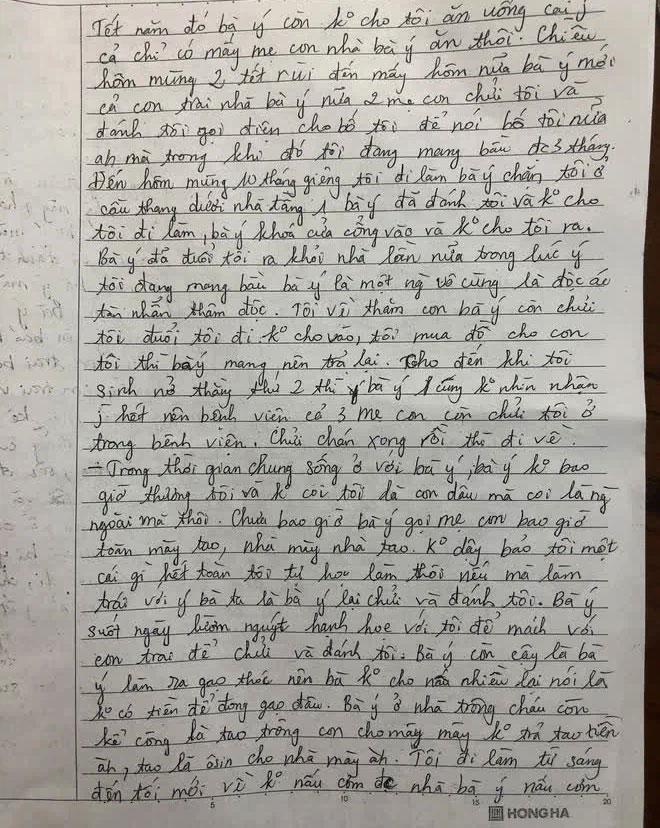 Tết năm đó bà ý còn kº cho tôi ăn uống cái j
cả chỉ có mấy mẹ con nhà bà ý ăn thôi. Chiều
hôm mùng 2 tết rùi đến mấy hôm nữa bà ý mới
cả con trai nhà bà ý nữa 2 mẹ con chửi tôi và
đánh tôi gọi điện cho bố tôi để nói bố tôi nữa
ah mà trong khi đó tôi đang mang bầu đc 3 tháng.
Đến hôm mùng 10 tháng giêng tôi đi làm bà ý chặn tôi ở
cầu thang dưới nhà tầng 1 bà ý đã đánh tôi và kº cho
tôi đi làm, bà ý khoá cửa cổng vào và kº cho tôi ra.
Bà ý đã đuổi tôi ra khỏi nhà lần nữa trong lúc ý
tôi đang mang bầu bà ý là một ng vô cùng là độc ác
tàn nhẫn thâm độc. Tôi về thăm con bà ý còn chửi
tôi đuổi tôi đi kº cho vào, tôi mua đồ cho con
tôi thì bà ý mang nên trả lại. Cho đến khi tôi
sinh nở thằng thứ 2 thì bà ý cũng kº nhìn nhận
j hết nên bệnh viện cả 3 mẹ con còn chửi tôi ở
trong bệnh viện. Chửi chán xong rồi thì đi về.
- Trong thời gian chung sống ở với bà ý, bà ý kº bao
giờ thương tôi và k coi tôi là con dâu mà coi là ng
ngoài mà thôi. Chưa bao giờ bà ý gọi mẹ con bao giờ
toàn mày tao, nhà mày nhà tao. Kº dậy bảo tôi một
cái gì hết toàn tôi tự học làm thôi nếu mà làm
trái với ý bà ta là bà ý lại chửi và đánh tôi. Bà ý
suốt ngày lườm nguýt hạnh họe với tôi để mách với
con trai để chửi và đánh tôi. Bà ý còn cậy là bà
ý làm ra gạo thóc nên bà kº nấu nhiều lại nói là
kº có tiền để đong gạo đâu. Bà ý ở nhà trông cháu còn
kể công là tao trông con cho mày mày kº trả tao tiền
àh, tao là ôsin cho nhà mày àh. Tôi đi làm từ sáng
đến tối mới về kº nấu cơm đc nhà bà ý nấu cơm
5 10 15 20
HONG HA